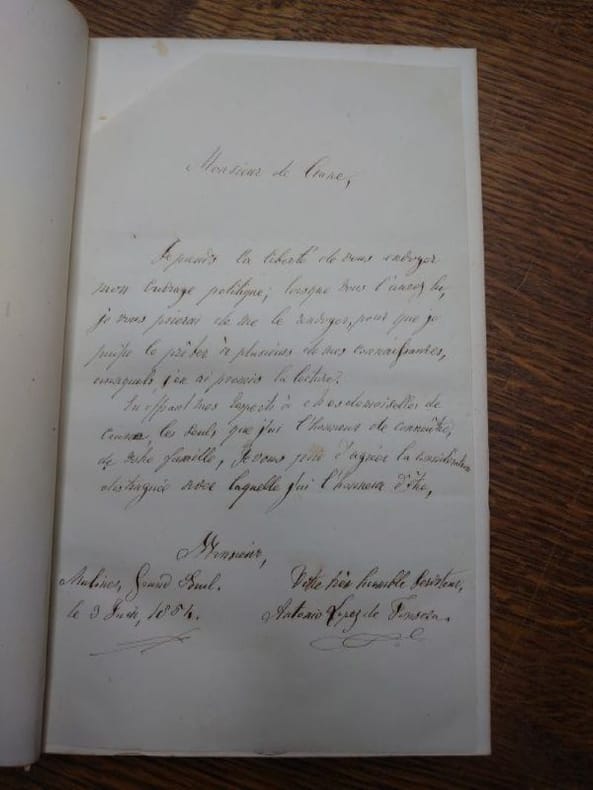 Monsieur de Crane,
Je prends la liberté de vous envoyer
mon ouvrage politique; lorsque vous l'aurez lu,
je vous prierai de me le renvoyer, pour que je
puisse le prêter à plusieurs de mes connaissances,
auxquels j'en ai promis la lecture.
En offrant mes respects à Mesdemoiselles de
les seuls que j'ai l'honneur de connaître,
de votre famille, je vous prie d'agréer la considération
distinguée avec laquelle j'ai l'honneur d'être,
Monsieur,
Malines, Grand
Votre très humble Serviteur,
le 3 1854.
Antonio Lopez de Fonseca.